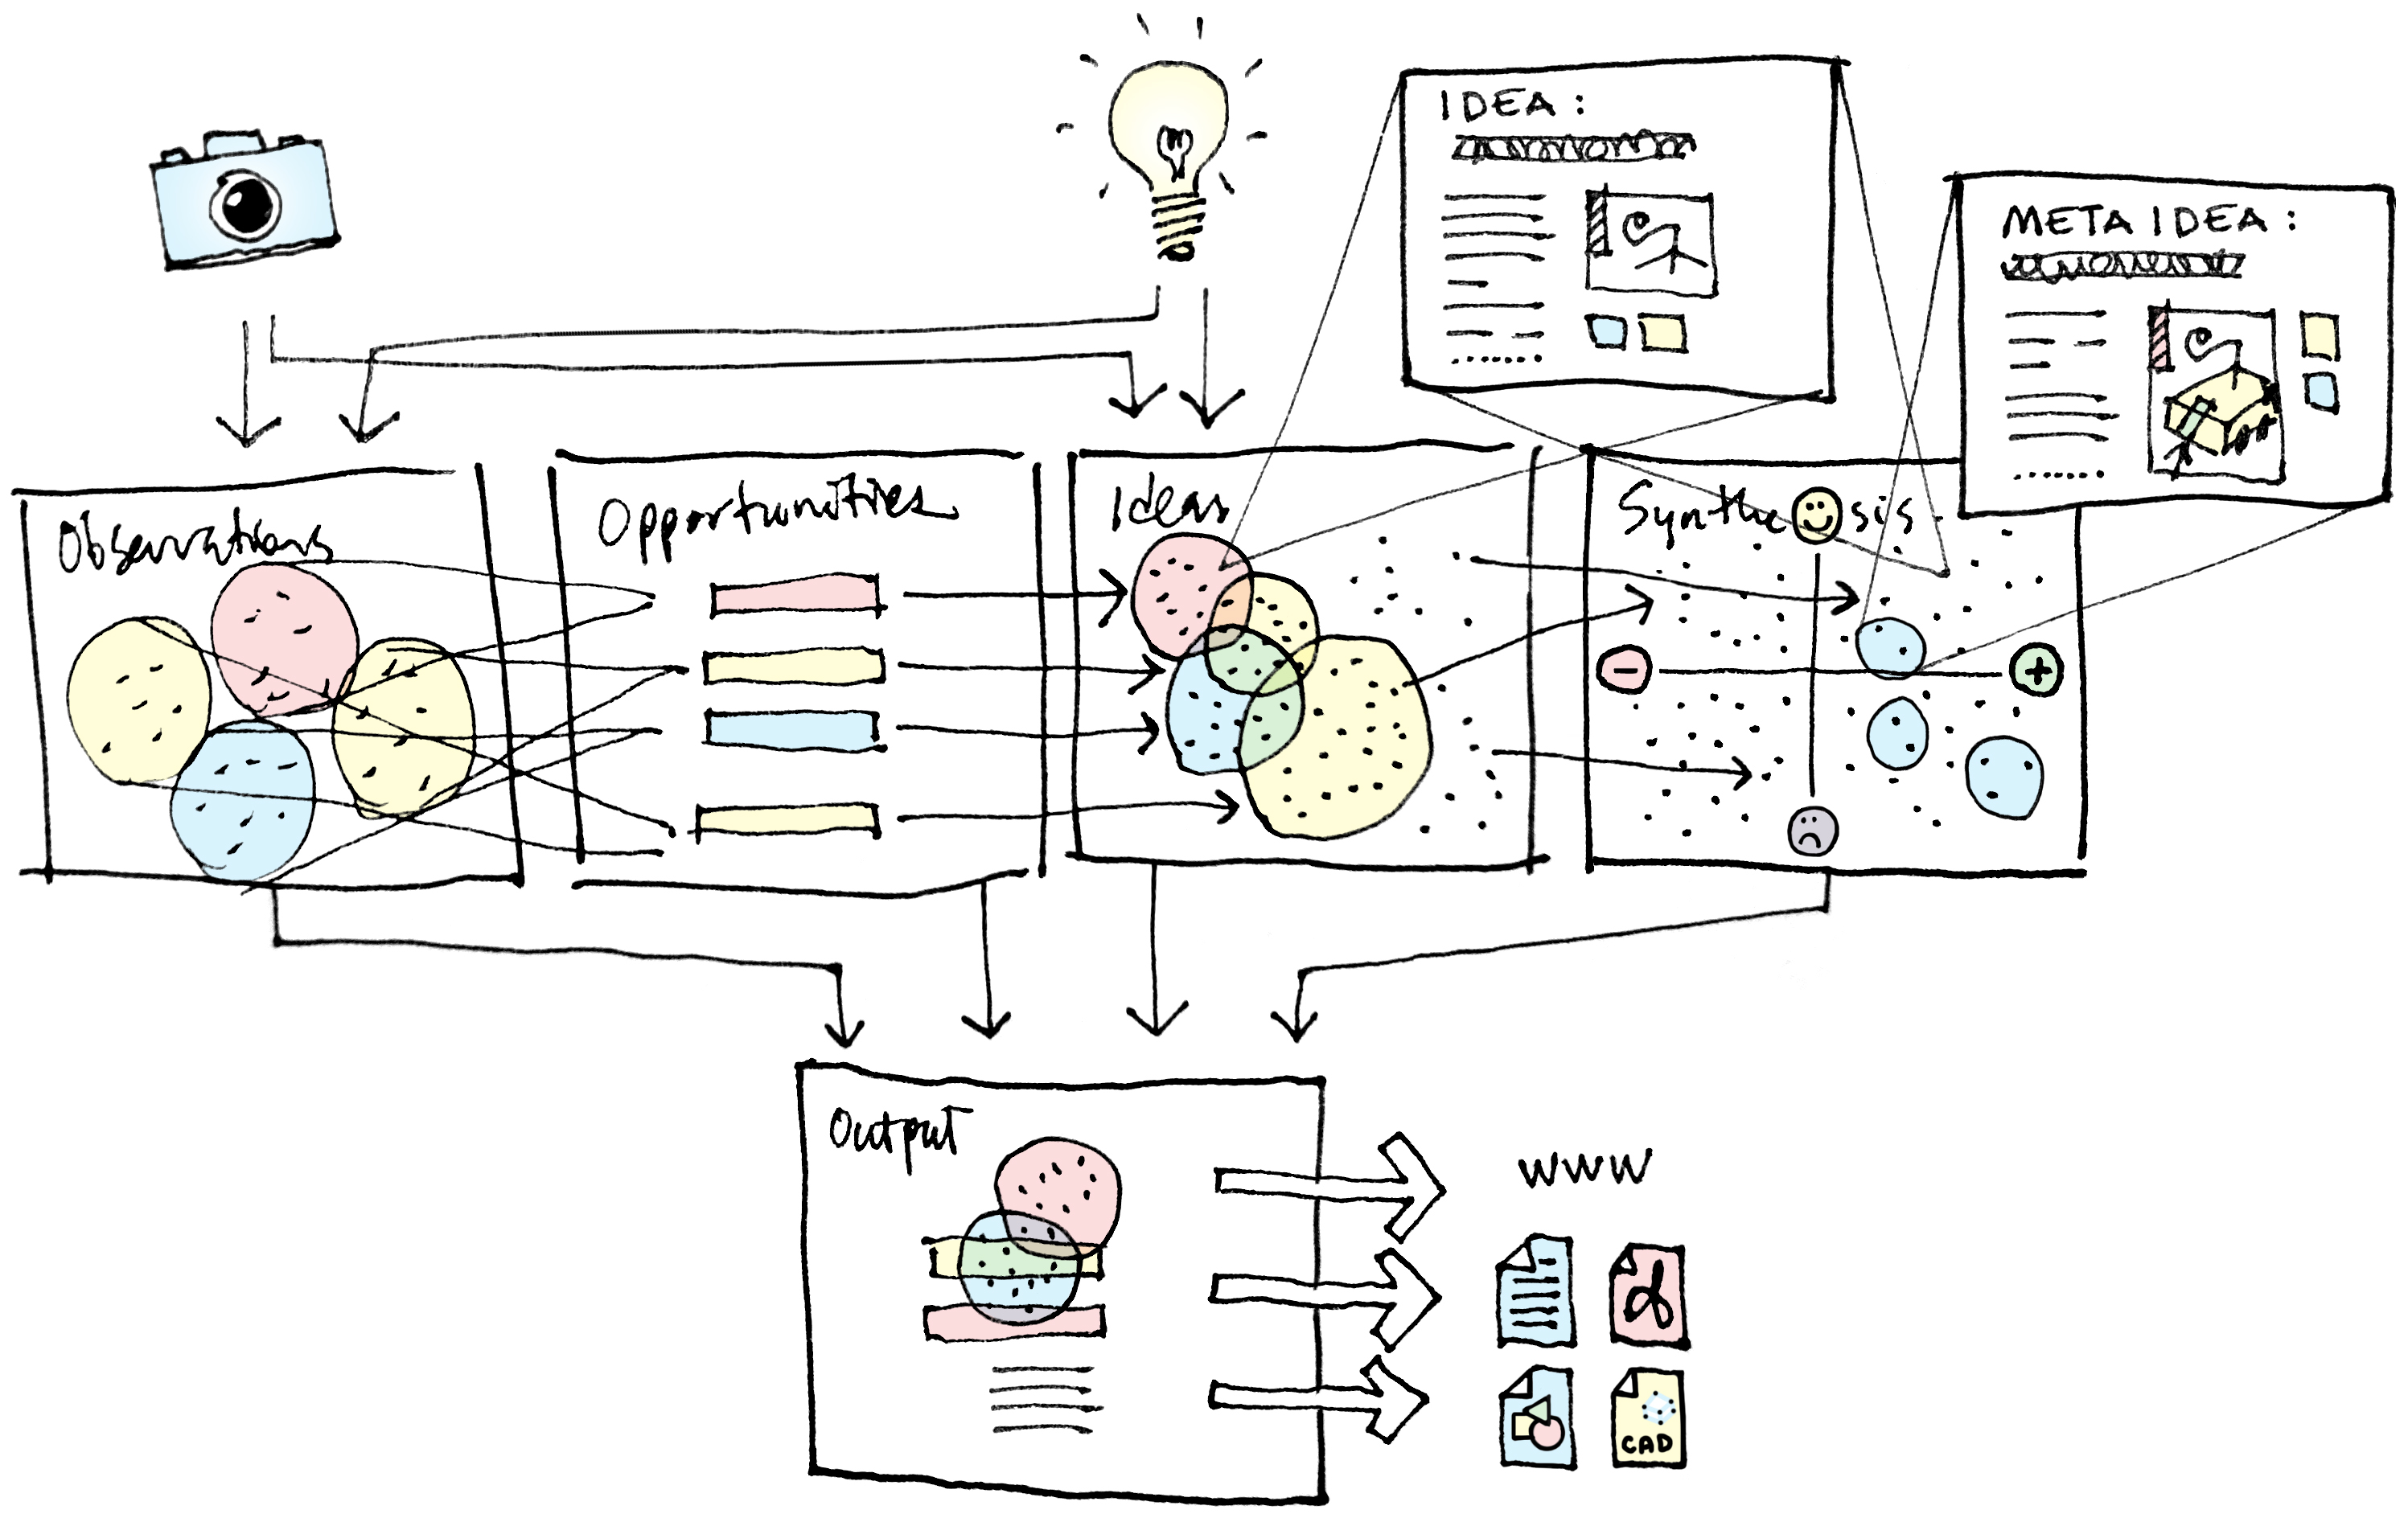 IDEA:
META IDEA:
Observations
Opportunities
Ideas
Synthesis
Output
WWW
CAD